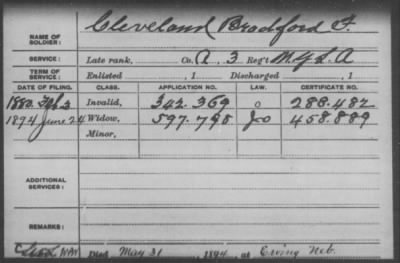 NAME OF SOLDIER: Cleveland Bradford F.
SERVICE: Late rank, Co. A, 3 Reg't N.Y. L. A
TERM OF SERVICE: Enlisted , 1 Discharged , 1
DATE OF FILING. CLASS. APPLICATION NO. LAW. CERTIFICATE NO.
1880. Feb 3 Invalid, 342.369 o 288.482
1894 June 24 Widow, 597.798 458.889
Minor,
ADDITIONAL SERVICES:
REMARKS:
Died May 31, 1894, at Ewing Neb.